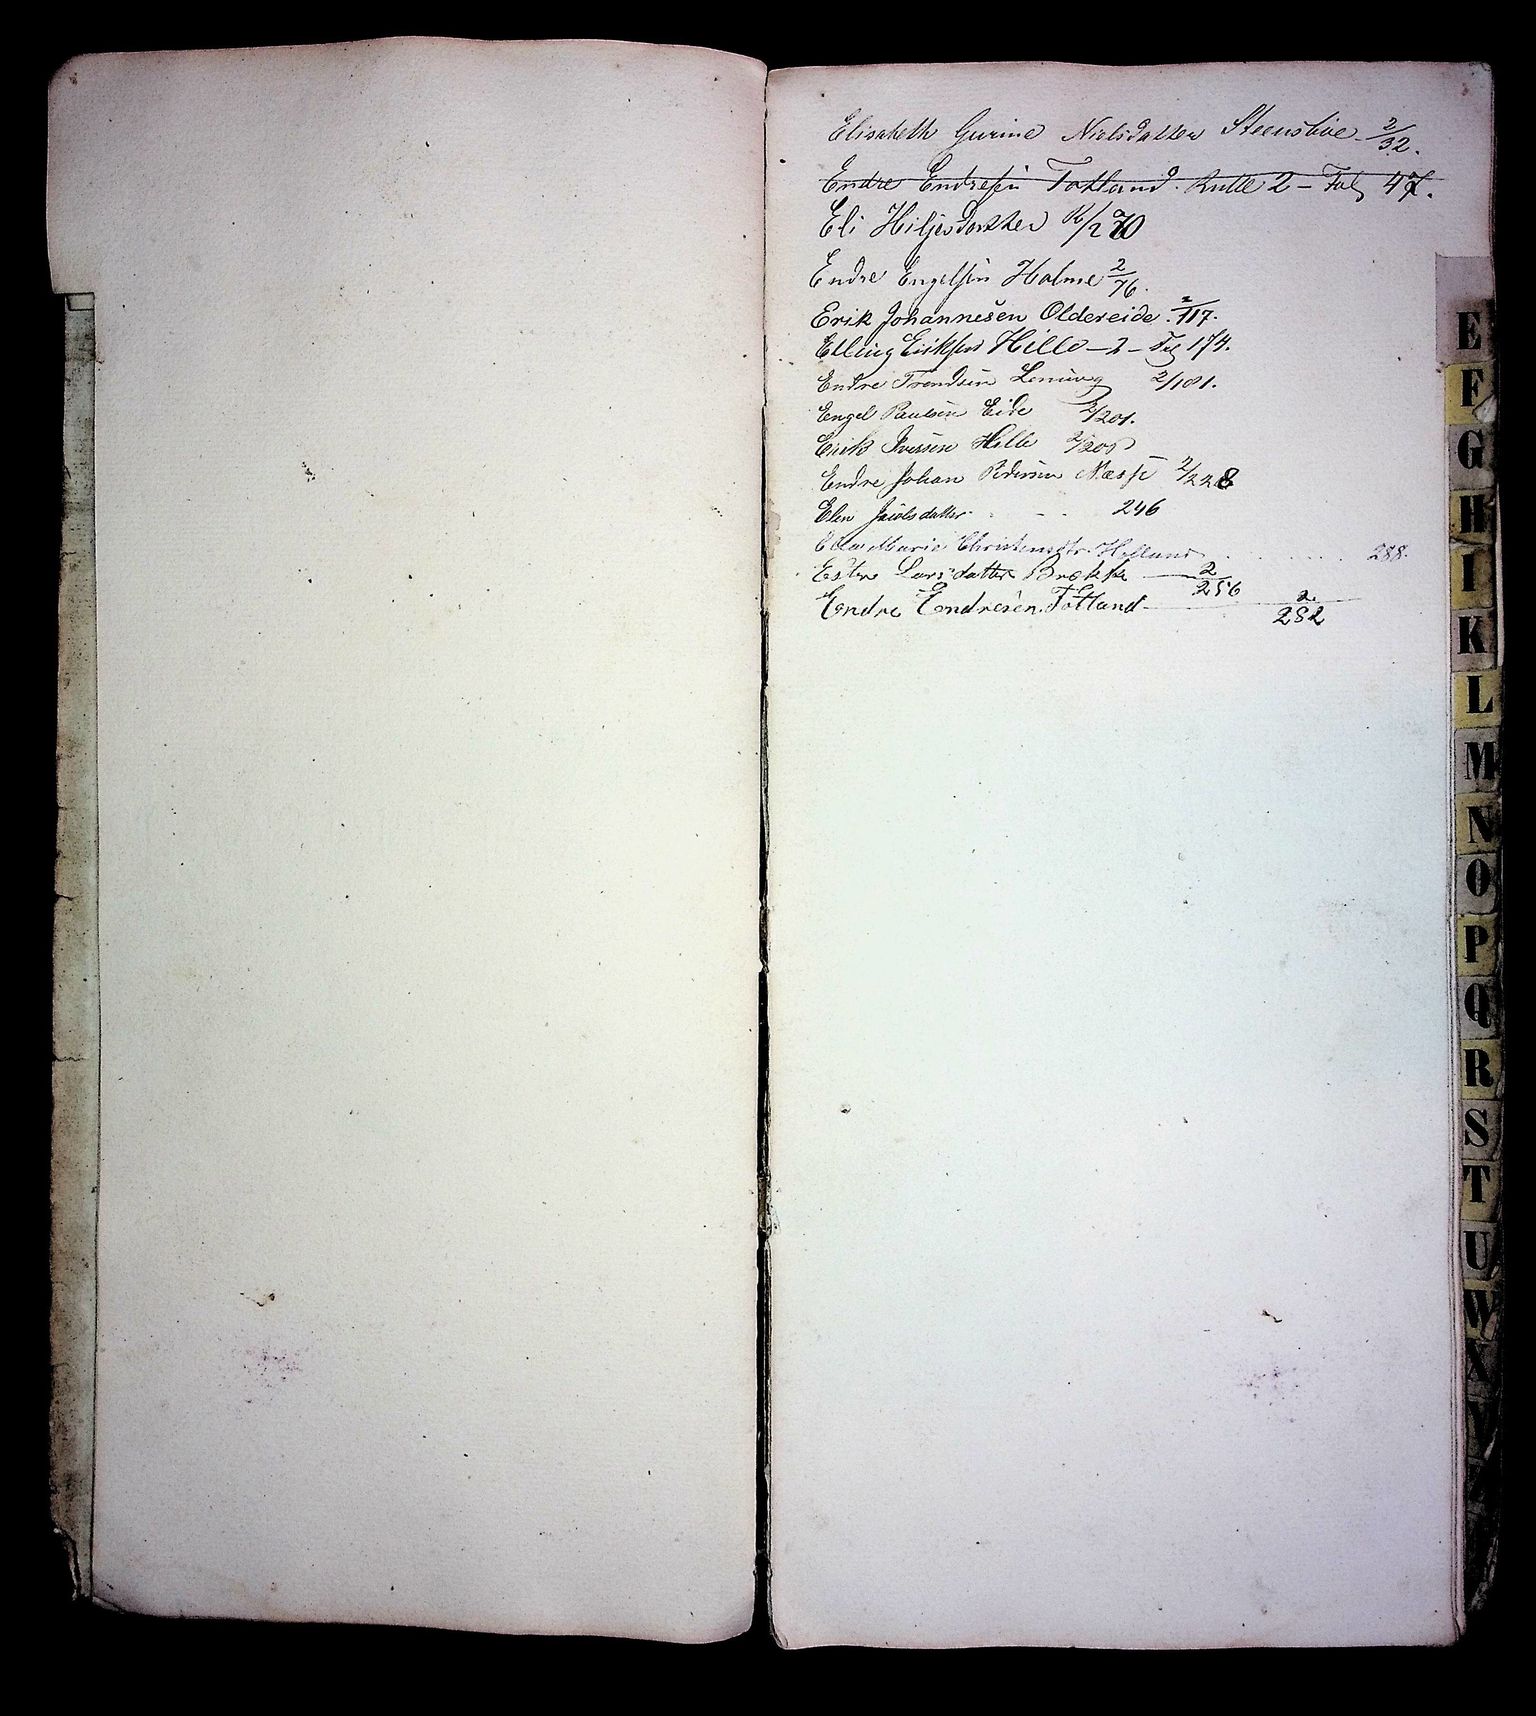 Elisabeth Gurine Nielsdatter Steensböe 2/32.
Endre Endresen Totland. Rulle 2 - Fol 47.
Eli Hiljesdatter R/2 70
Endre Engelsen Holme 2/76.
Erik Johannesen Oldereide. 2/117.
Elling Eriksen Hille - 2 - Fol 174.
Endre Trondsen 2/181.
Engel Paulsen Eide 2/201.
Erik Iversen Hille
Endre Johan Pedersen Næsse 2/228
Elen Jacobsdatter . - - . . 246
Marie Christensdtr. . . . . . . 288.
Lars datter Brække 2/256
Endre Endresen. Totland 2/282
E
F
G
H
I
K
L
M
N
O
P
Q
R
S
T
U
W
X
Y